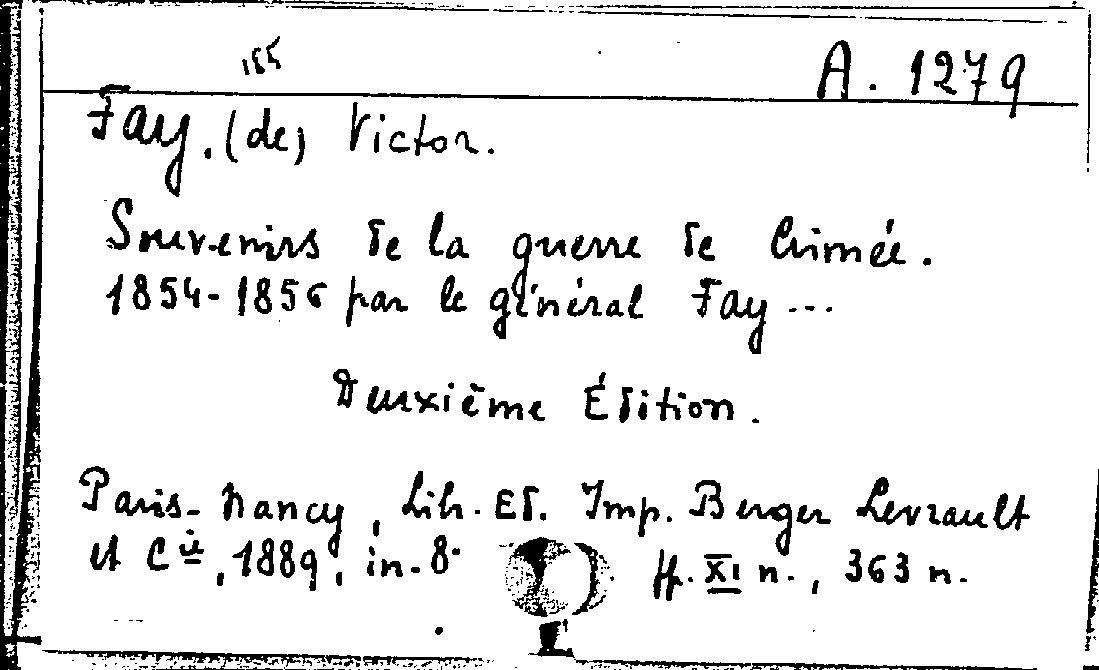 155 A. 1279
Fay. (de) Victor.
Souvenirs de la guerre de Crimée.
1854-1856 par le général Fay ...
Deuxième Édition.
Paris-Nancy, Lib. Ed. Imp. Berger Levrault
et Cie, 1889, in-8° ff. XI n., 363 n.